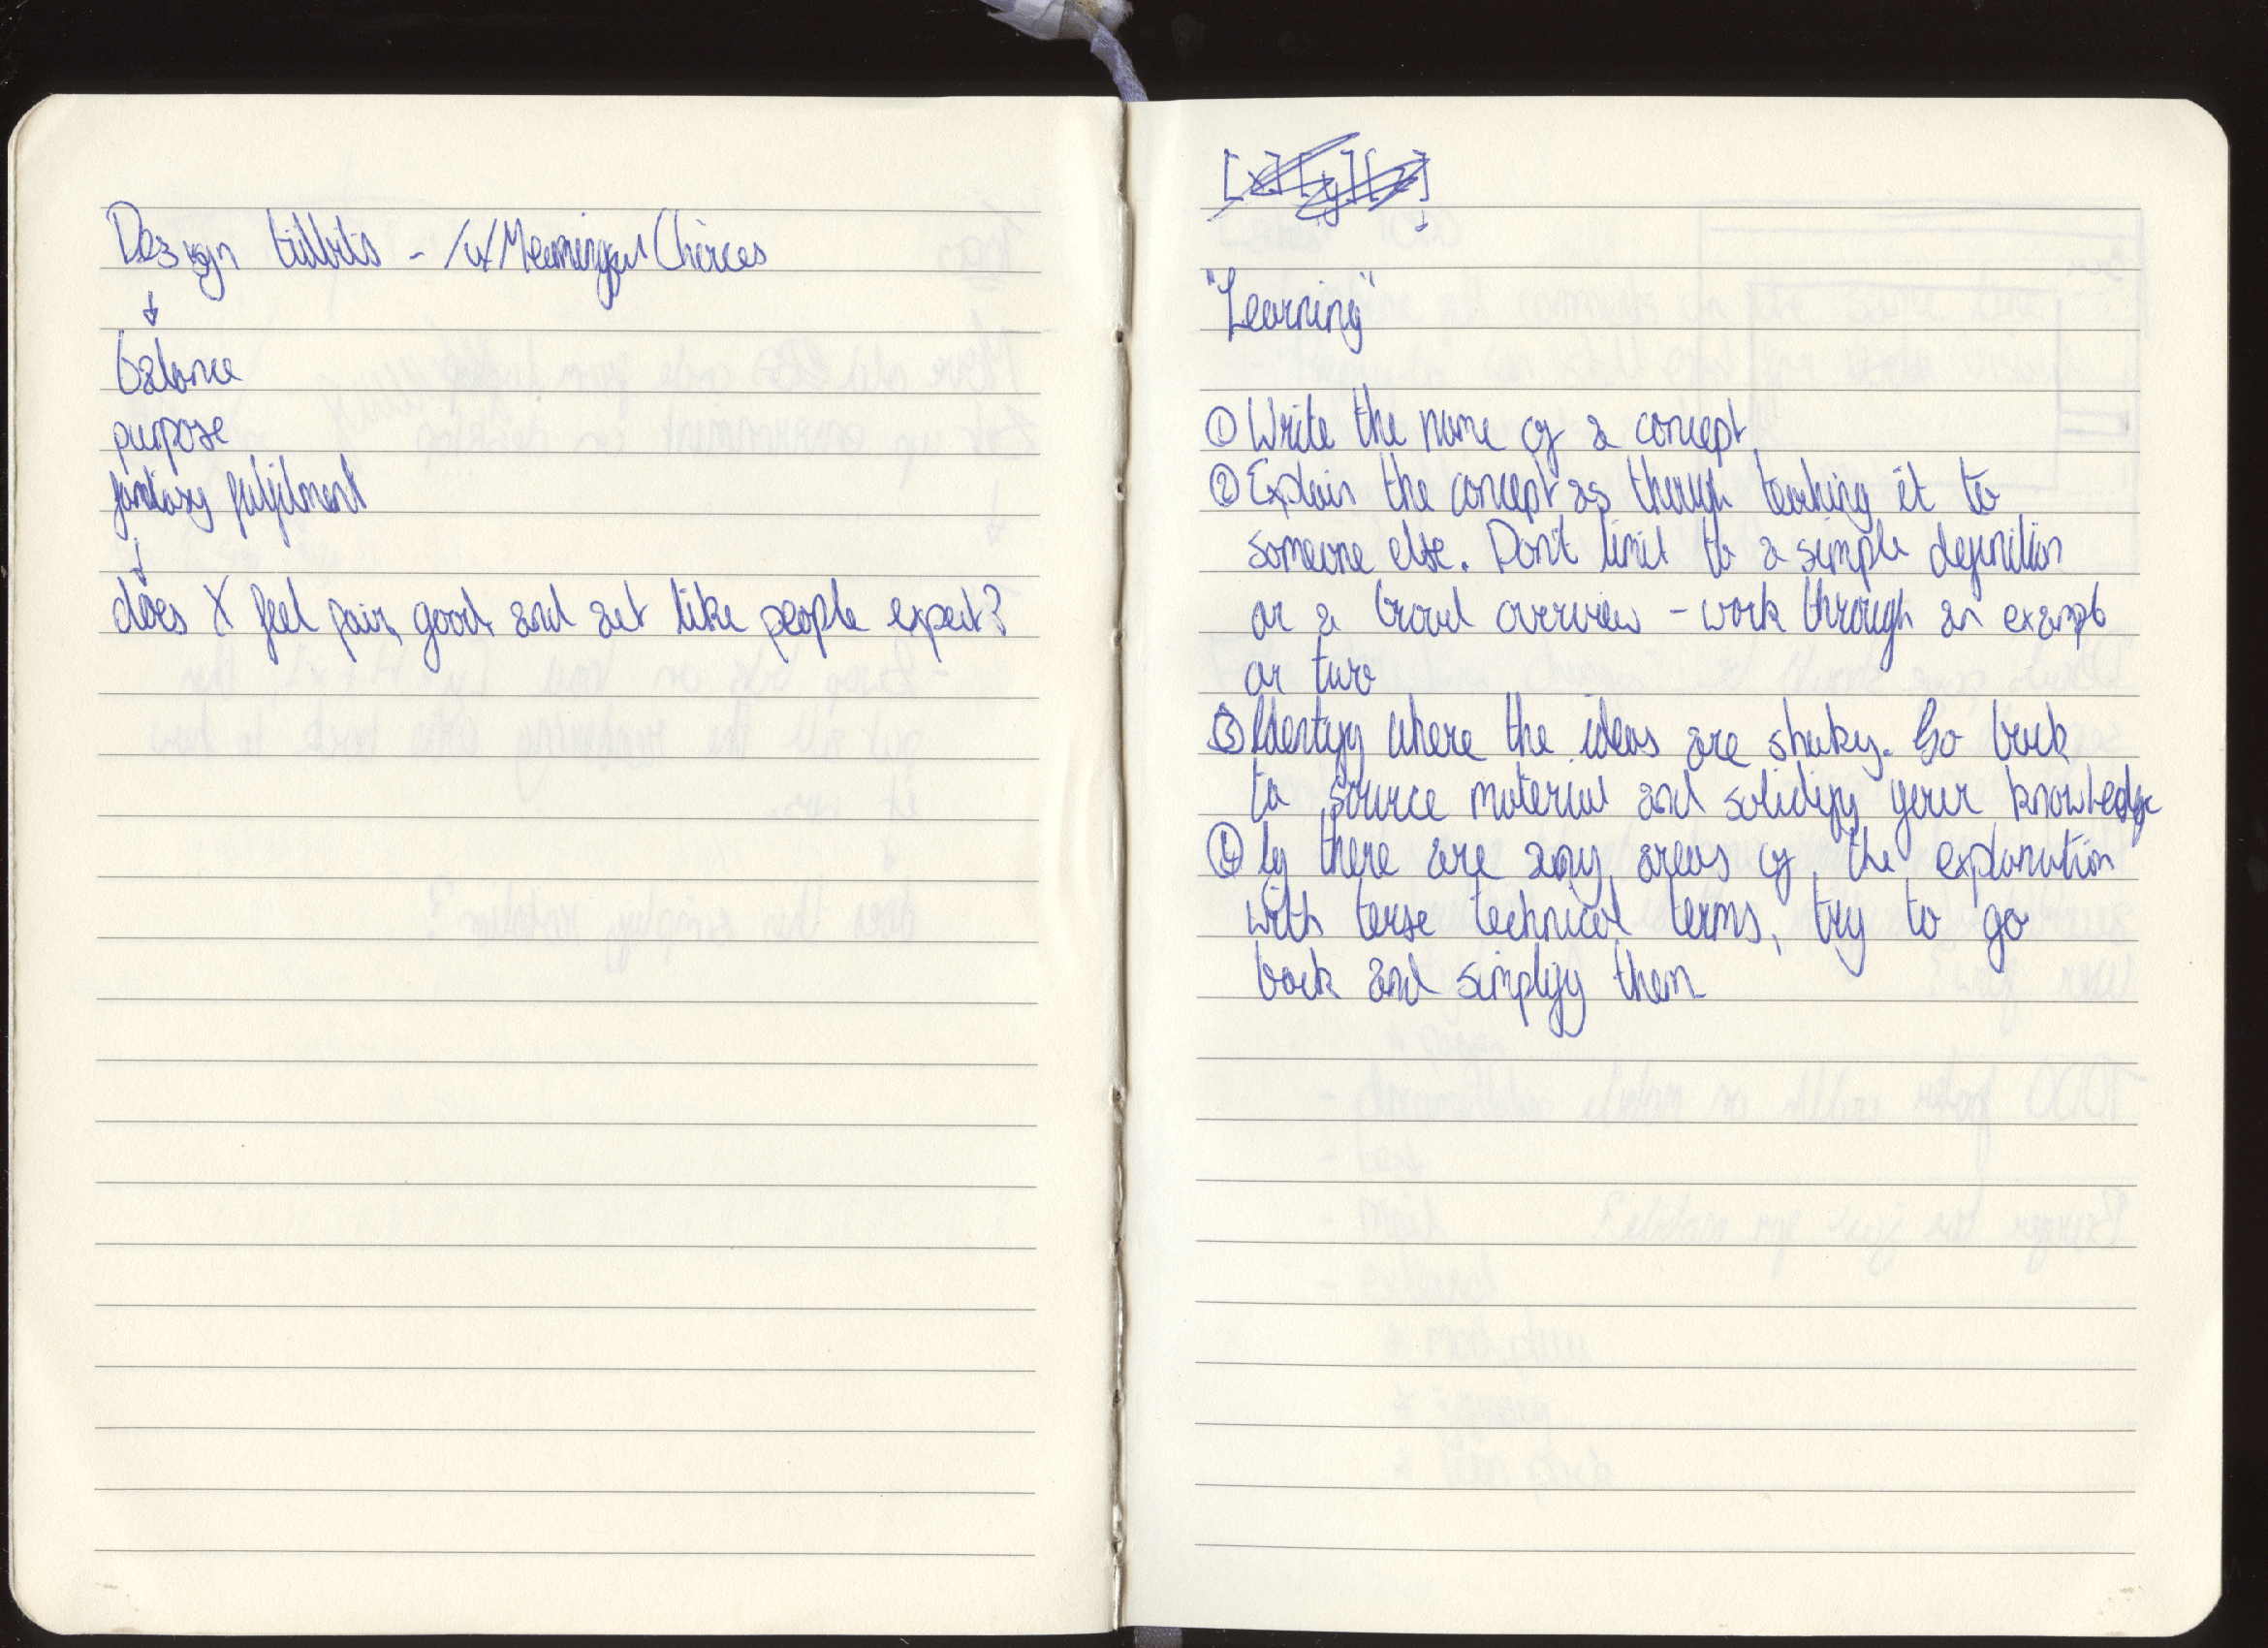 Design titbits - /u/MeaningfulChoices
↓
balance
purpose
fantasy fulfilment
↓
does X feel fair, good, and act like people expect?
[x][y][z]
↓
"Learning"
① Write the name of a concept
② Explain the concept as though teaching it to
someone else. Don't limit to a simple definition
or a broad overview - work through an example
or two
③ Identify where the ideas are shaky. Go back
to source material and solidify your knowledge
④ If there are any areas of the explanation
with terse technical terms, try to go
back and simplify them